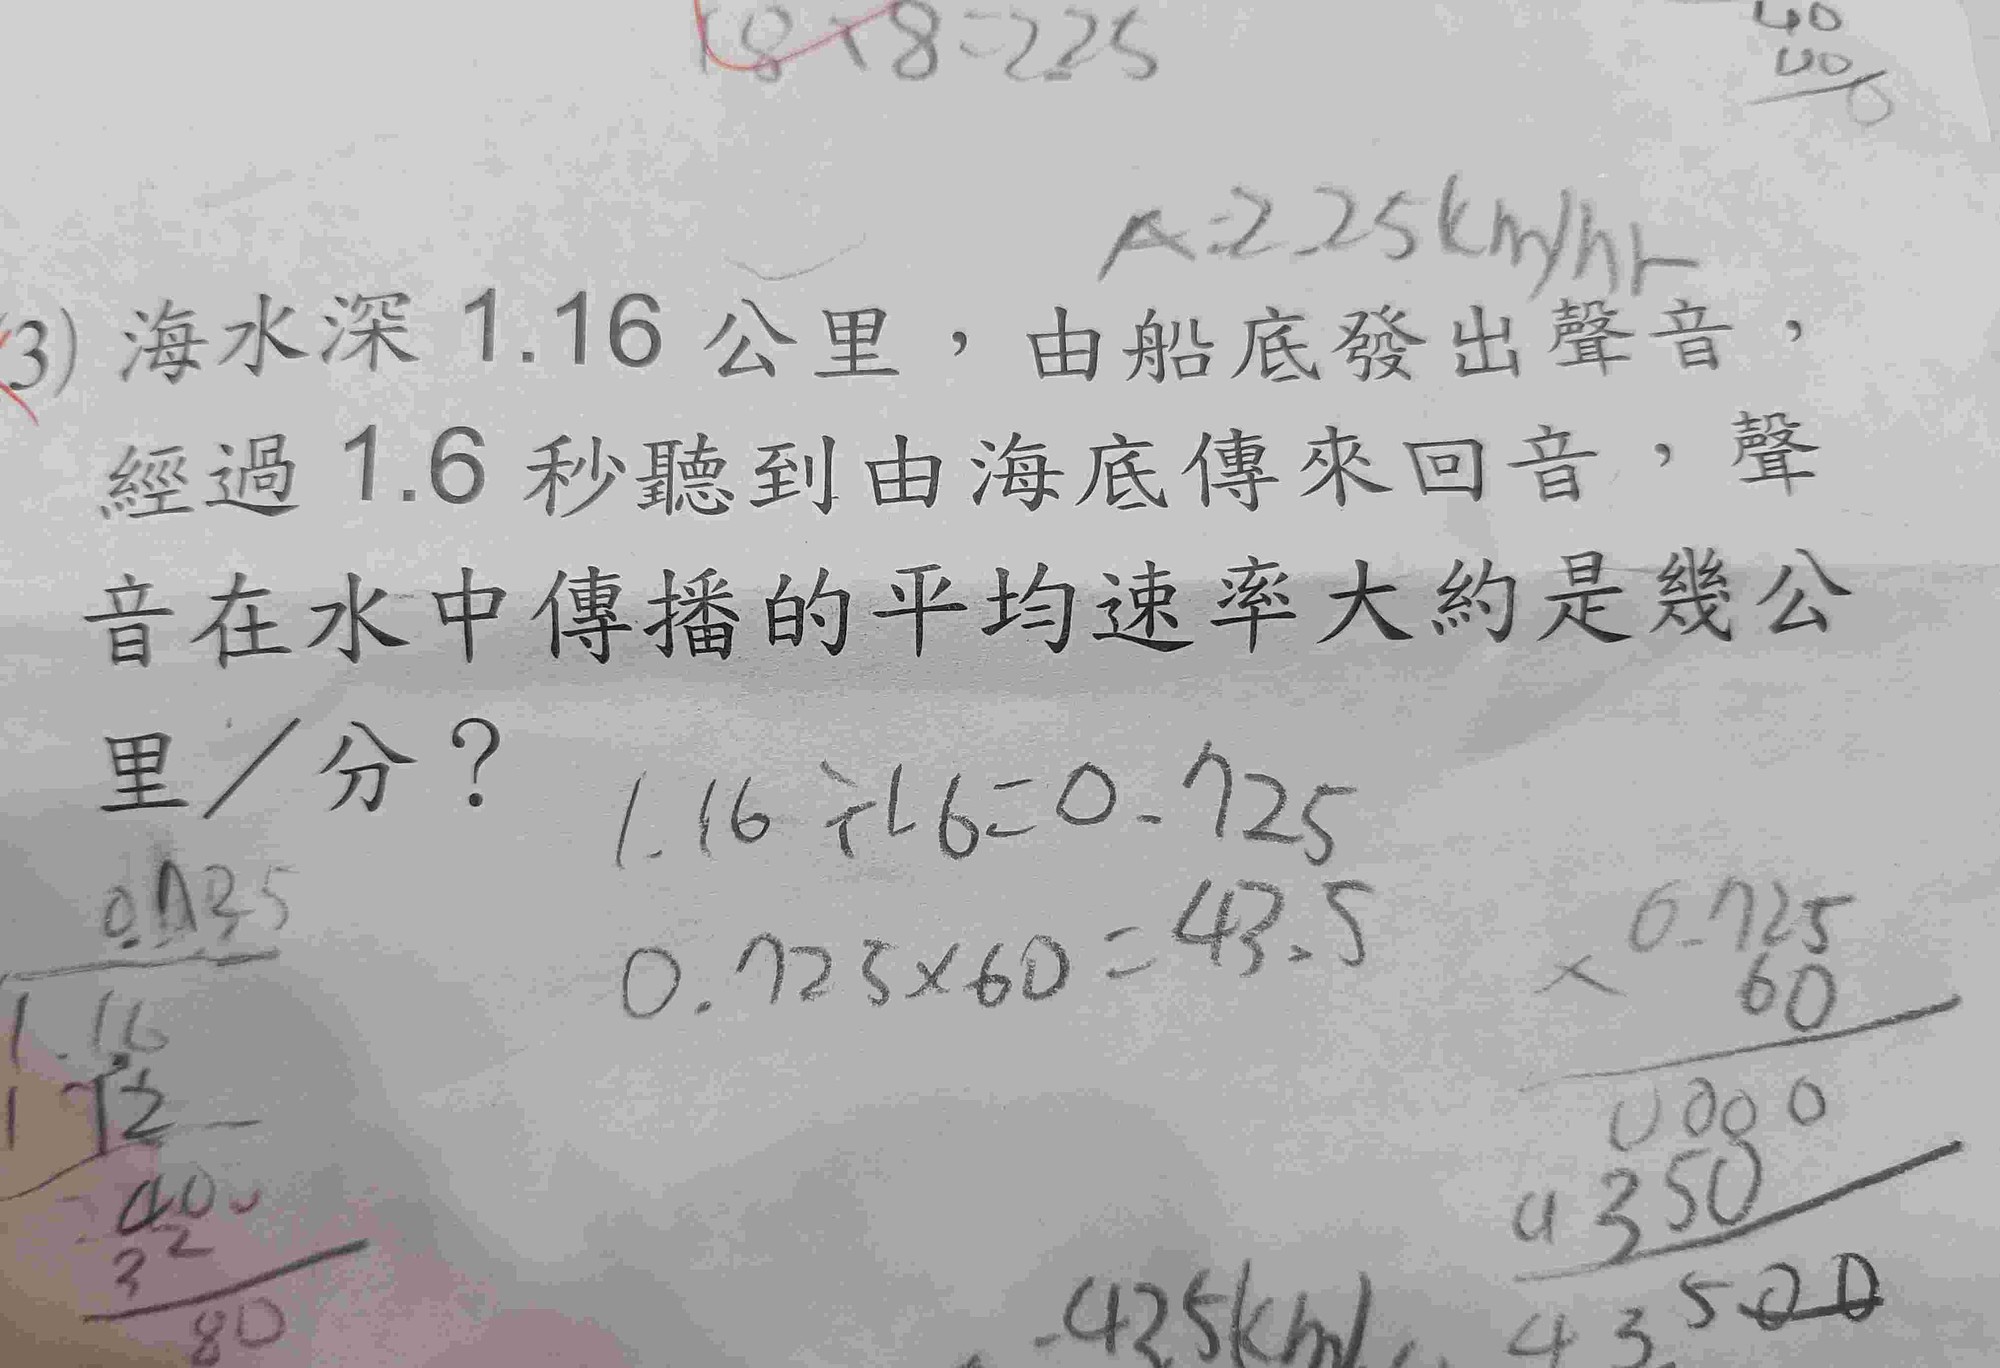 18×8=225
40
00
0
A=2.25km/hr
(3) 海水深 1.16 公里，由船底發出聲音，
經過 1.6 秒聽到由海底傳來回音，聲
音在水中傳播的平均速率大約是幾公
里／分？
1.16÷1.6=0.725
0.725×60=43.5
0.725
1.16
112
40
32
80
0.725
× 60
0000
4350
43.500
.425km/